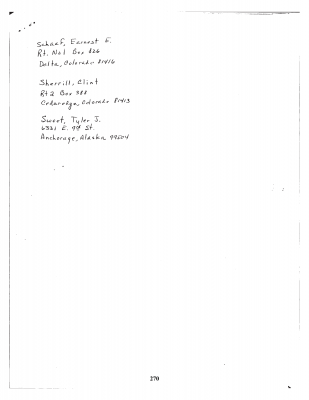 Schaef, Earnest E.
Rt. No1 Box 826
Delta, Colorado 81416
Sherrill, Clint
Rt 2 Box 388
Cedaredge, Colorado 81413
Sweet, Tyler J.
6321 E. 99 St.
Anchorage, Alaska 99504
270